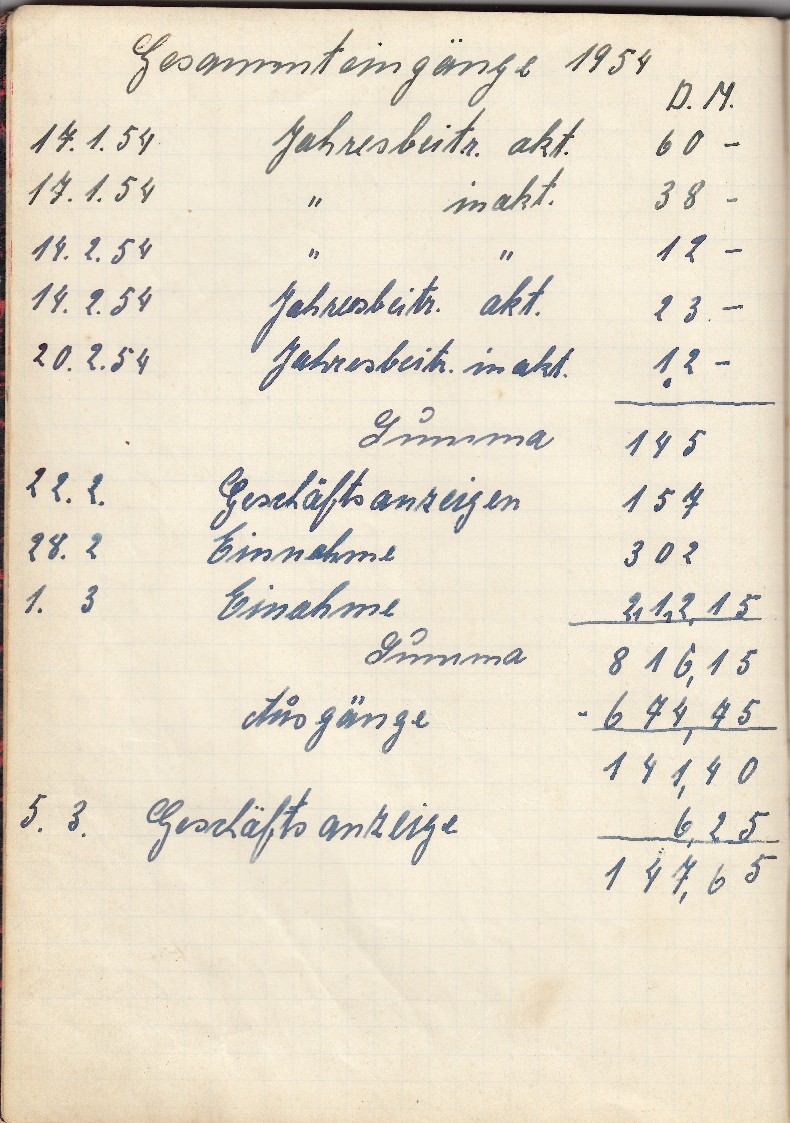 Gesammteingänge 1954
D. M.
17. 1. 54 Jahresbeitr. akt. 60 -
17. 1. 54 " inakt. 38 -
14. 2. 54 " " 12 -
14. 2. 54 Jahresbeitr. akt. 23 -
20. 2. 54 Jahresbeitr. inakt. 12 -
Summa 145
22. 2. Geschäftsanzeigen 157
28. 2 Einnahme 302
1. 3 Einahme 212,15
Summa 816,15
Ausgänge - 674,75
141,40
5. 3. Geschäftsanzeige 6,25
147,65